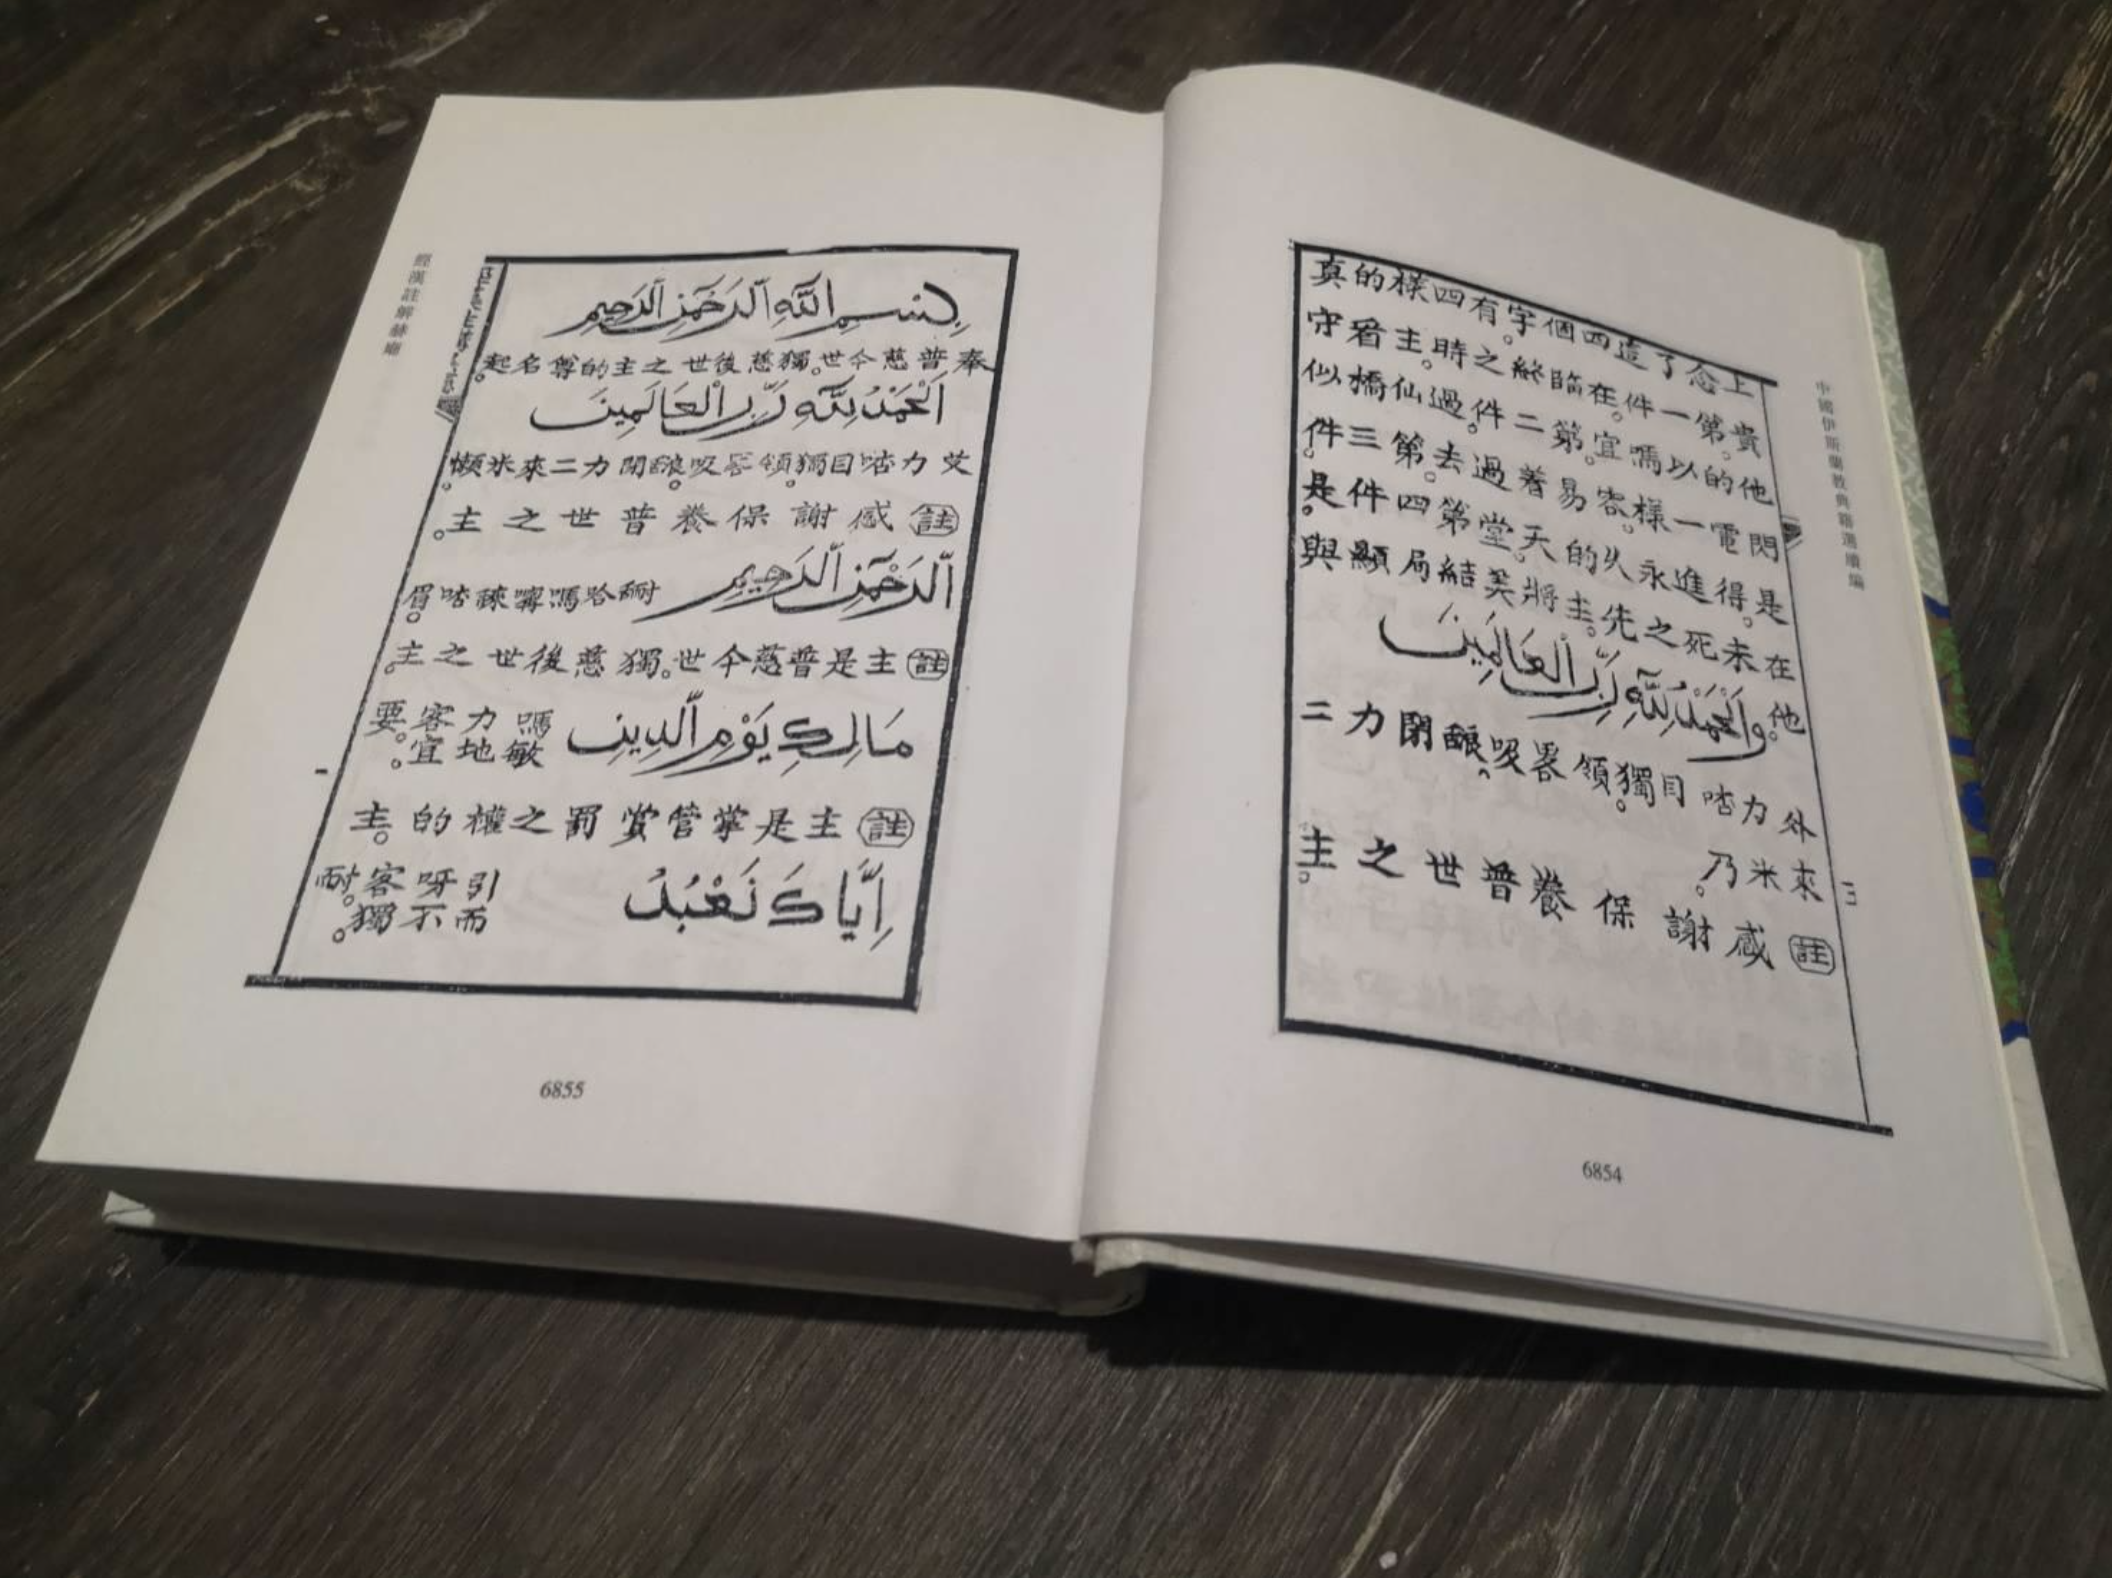 中國伊斯蘭教典籍選續編
上念了這四個字。有四樣的真
貴。第一件。在臨終之時。主看守
他的以嗎宜。第二件。過仙橋似
閃電一樣。容易着過去。第三件。
是得。進永久的天堂。第四件是。
在未死之先。主將美結局顯與
他。وَالْحَمْدُ لِلَّهِ رَبِّ الْعَالَمِينَ
外力目獨。領畧吸。閉力二
來米乃。
註 感謝保養普世之主。
三
6854
經漢註解赫
بِسْمِ اللَّهِ الرَّحْمَنِ الرَّحِيمِ
奉普慈今世。獨慈後世之主的尊名起。
اَلْحَمْدُ لِلَّهِ رَبِّ الْعَالَمِينَ
艾力目獨。領畧吸。閉力二來米懶。
註 感謝保養普世之主。
اَلرَّحْمَنِ الرَّحِيمِ 哈嗎眉。
註 主是普慈今世。獨慈後世之主。
مَالِكِ يَوْمِ الدِّينِ 嗎力客要。
敏地宜。
註 主是掌管賞罰之權的主。
اِيَّاكَ نَعْبُدُ 引呀客耐。
而不獨。
一
6855